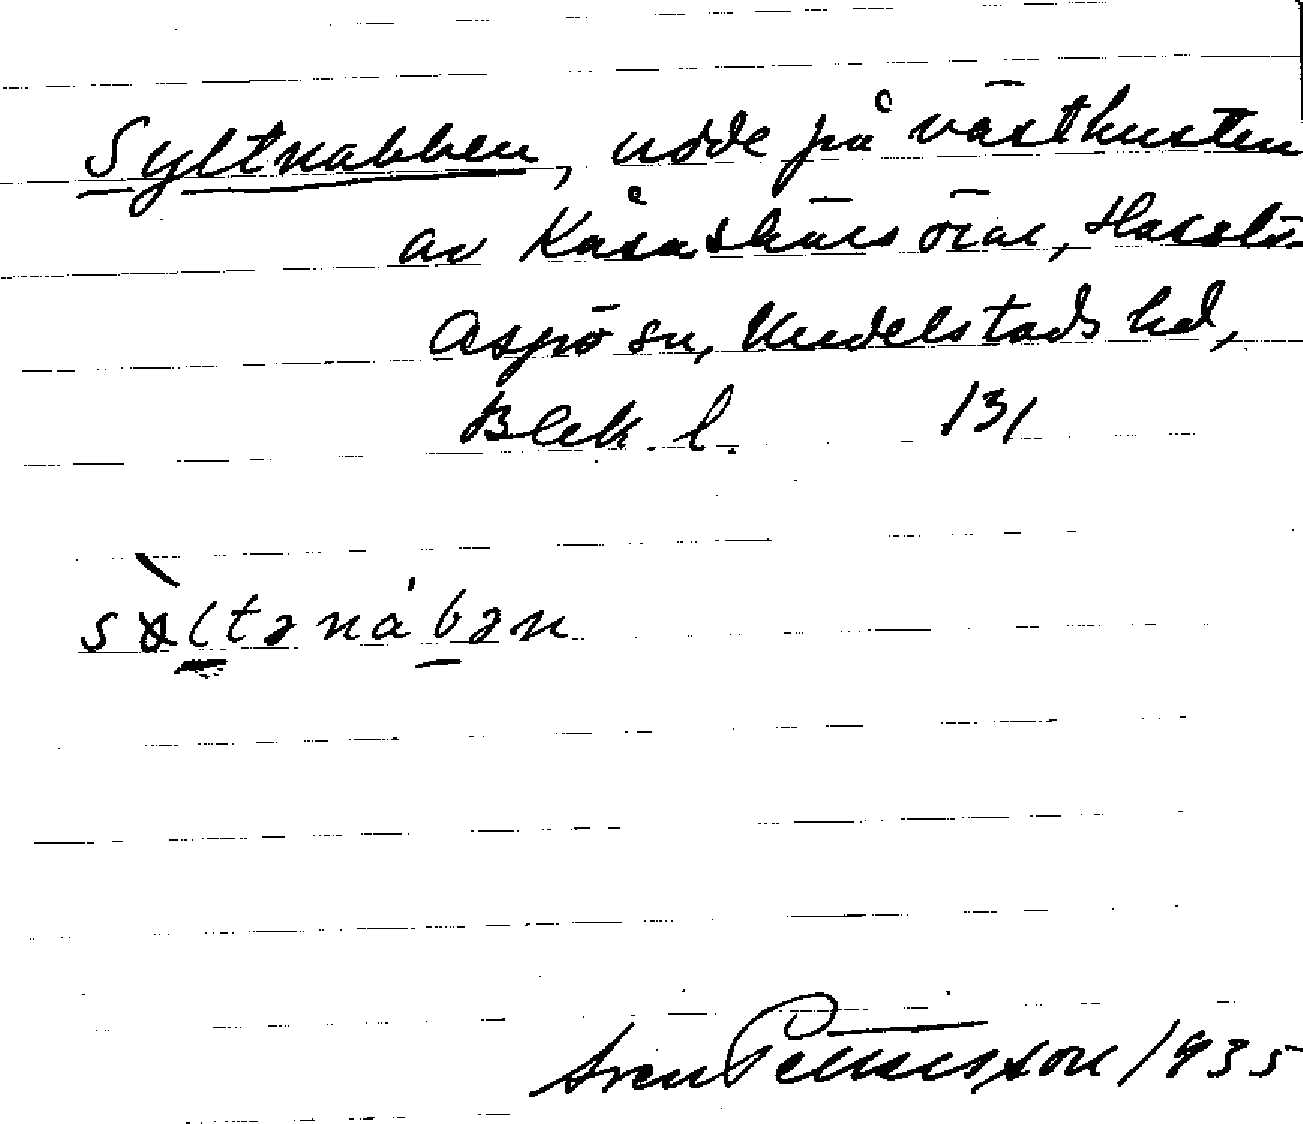 Syltnabben, udde på västkusten
av Kåsaskärs örar, Hasslö-
Aspö sn, Medelstads hd,
Blek. l. 131
sỳltəná'bən
Sven Pettersson 1935